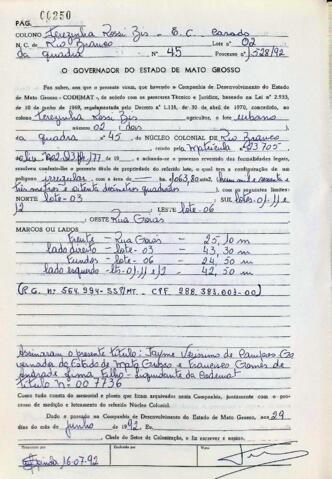 00250
PÁG.
COLONO Terezinha Rossi Zis - E.C. Casado
N. C. de Rio Branco Lote nº 02
da quadra nº 45 Processo nº 1.528/92
O GOVERNADOR DO ESTADO DE MATO GROSSO
Faz saber, aos que o presente virem, que havendo a Companhia de Desenvolvimento do Estado
de Mato Grosso - CODEMAT -, de acordo com os pareceres Técnico e Jurídico, baseado na Lei nº 2.933,
de 10 de junho de 1969, regulamentada pelo Decreto nº 1.138, de 30 de abril de 1970, concedido, ao colono
Terezinha Rossi Zis agricultor, o lote urbano
número 02 (dois)
da quadra nº 45 do NÚCLEO COLONIAL DE Rio Branco
criado pela Matrícula
de 19, e achando-se o processo revestido das formalidades legais,
resolveu conferir-lhe o presente título de propriedade do referido lote, que tem a configuração de um
polígono irregular com a área de 1.063,80 m2 (hum mil e sessenta e
três metros e oitenta decímetros quadrados), com os seguintes limites:
NORTE lote-03 SUL lotes-01-11 e
12 LESTE lote-06
OESTE Rua Goiás
MARCOS OU LADOS
Frente - Rua Goiás - 25,10 m
lado direito - lote - 03 - 43,30 m
Fundos - lote - 06 - 24,50 m
lado esquerdo - lts-01-11 e 12 - 42,50 m
(R.G. nº 564.994-SSP/MT. - CPF 288.383.003-00)
Assinaram o presente título: Jayme Veríssimo de Campos Go
vernador do Estado de Mato Grosso e Francisco Gomes de
Andrade Lima Filho - Liquidante da Codemat
título nº 007736
Como tudo consta do memorial e planta que ficam arquivados nesta Companhia, juntamente com o pro-
cesso de medição e loteamento do referido Núcleo Colonial.
Dado e passado na Companhia de Desenvolvimento do Estado de Mato Grosso, aos 29
dias do mês de junho de 1992. Eu,
Chefe do Setor de Colonização, o fiz escrever e assino.
16-07-92